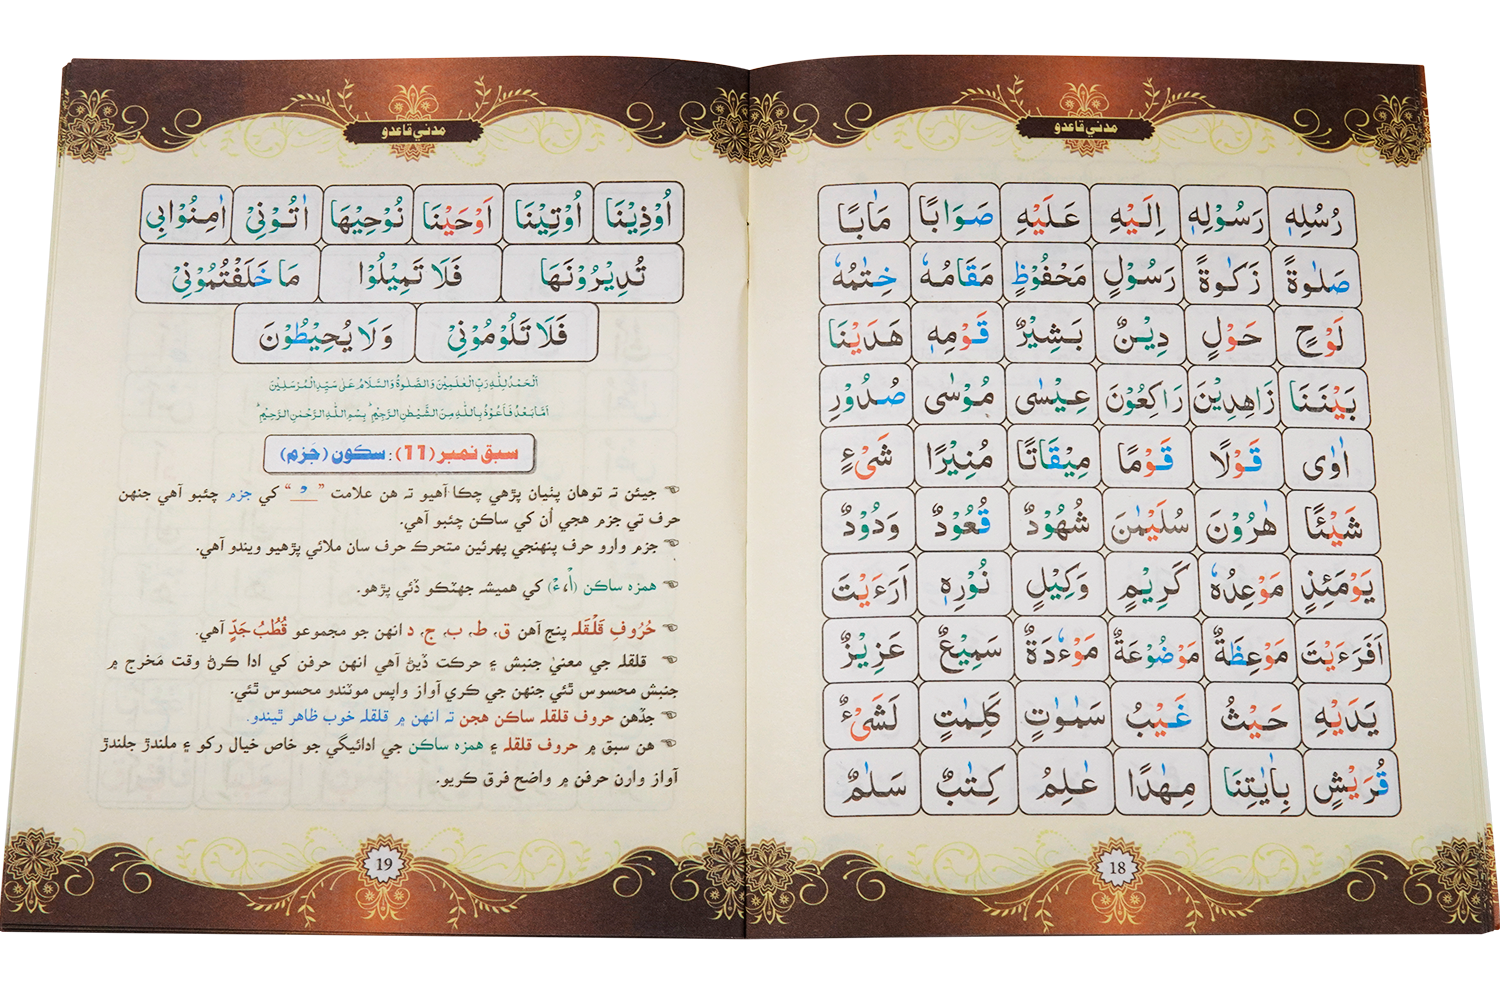 مدني قاعدو
رُسُلِهٖ رَسُوْلِهٖ اِلَيْهِ عَلَيْهِ صَوَابًا مَاٰبًا
صَلٰوةً زَكٰوةً رَسُوْلٍ مَحْفُوْظٍ مَقَامُهٗ خِتٰمُهٗ
لَوْحٍ حَوْلٍ دِيْنٌ بَشِيْرٌ قَوْمِهٖ هَدَيْنَا
بَيْنَنَا زَاهِدِيْنَ رَاكِعُوْنَ عِيْسٰى مُوْسٰى صُدُوْرِ
اٰوٰى قَوْلًا قَوْمًا مِيْقَاتًا مُنِيْرًا شَىْءٍ
شَيْئًا هٰرُوْنَ سُلَيْمٰنَ شُهُوْدٌ قُعُوْدٌ وَدُوْدٌ
يَوْمَئِذٍ مَوْعِدُهٗ كَرِيْمٍ وَكِيْلٍ نُوْرِهٖ اَرَءَيْتَ
اَفَرَءَيْتَ مَوْعِظَةٌ مَوْضُوْعَةٌ مَوْءٗدَةٌ سَمِيْعٌ عَزِيْزٌ
يَدَيْهِ حَيْثُ غَيْبُ سَمٰوٰتٍ كَلِمٰتٍ لَشَىْءٌ
قُرَيْشٍ بِاٰيٰتِنَا مِهٰدًا عٰلِمُ كِتٰبٌ سَلٰمٌ
18
مدني قاعدو
اُوْذِيْنَا اُوْتِيْنَا اَوْحَيْنَا نُوْحِيْهَا اٰتُوْنِيْ اٰمِنُوْابِي
تُدِيْرُوْنَهَا فَلَا تَمِيْلُوْا مَا خَلَفْتُمُوْنِيْ
فَلَا تَلُوْمُوْنِيْ وَلَا يُحِيْطُوْنَ
اَلْحَمْدُ لِلّٰهِ رَبِّ الْعٰلَمِيْنَ وَالصَّلٰوةُ وَالسَّلَامُ عَلٰى سَيِّدِ الْمُرْسَلِيْنَ
اَمَّا بَعْدُ فَاَعُوْذُ بِاللّٰهِ مِنَ الشَّيْطٰنِ الرَّجِيْمِ ؕ بِسْمِ اللّٰهِ الرَّحْمٰنِ الرَّحِيْمِ ؕ
سبق نمبر (11): سڪون (جَزم)
جيئن ته توهان پٺيان پڙهي چڪا آهيو ته هن علامت ”ـْـ“ کي جزم چئبو آهي جنهن
حرف تي جزم هجي اُن کي ساڪن چئبو آهي.
جزم وارو حرف پنهنجي پهرئين متحرڪ حرف سان ملائي پڙهيو ويندو آهي.
همزه ساڪن (أْ،ءْ) کي هميشه جهٽڪو ڏئي پڙهو.
حُرُوفِ قَلْقَله پنج آهن ق، ط، ب، ج، د انهن جو مجموعو قُطُبُ جَدٍّ آهي.
قلقله جي معنيٰ جنبش ۽ حرڪت ڏيڻ آهي انهن حرفن کي ادا ڪرڻ وقت مَخرج ۾
جنبش محسوس ٿئي جنهن جي ڪري آواز واپس موٽندو محسوس ٿئي.
جڏهن حروف قلقله ساڪن هجن ته انهن ۾ قلقله خوب ظاهر ٿيندو.
هن سبق ۾ حروف قلقله ۽ همزه ساڪن جي ادائيگي جو خاص خيال رکو ۽ ملندڙ جلندڙ
آواز وارن حرفن ۾ واضح فرق ڪريو.
19